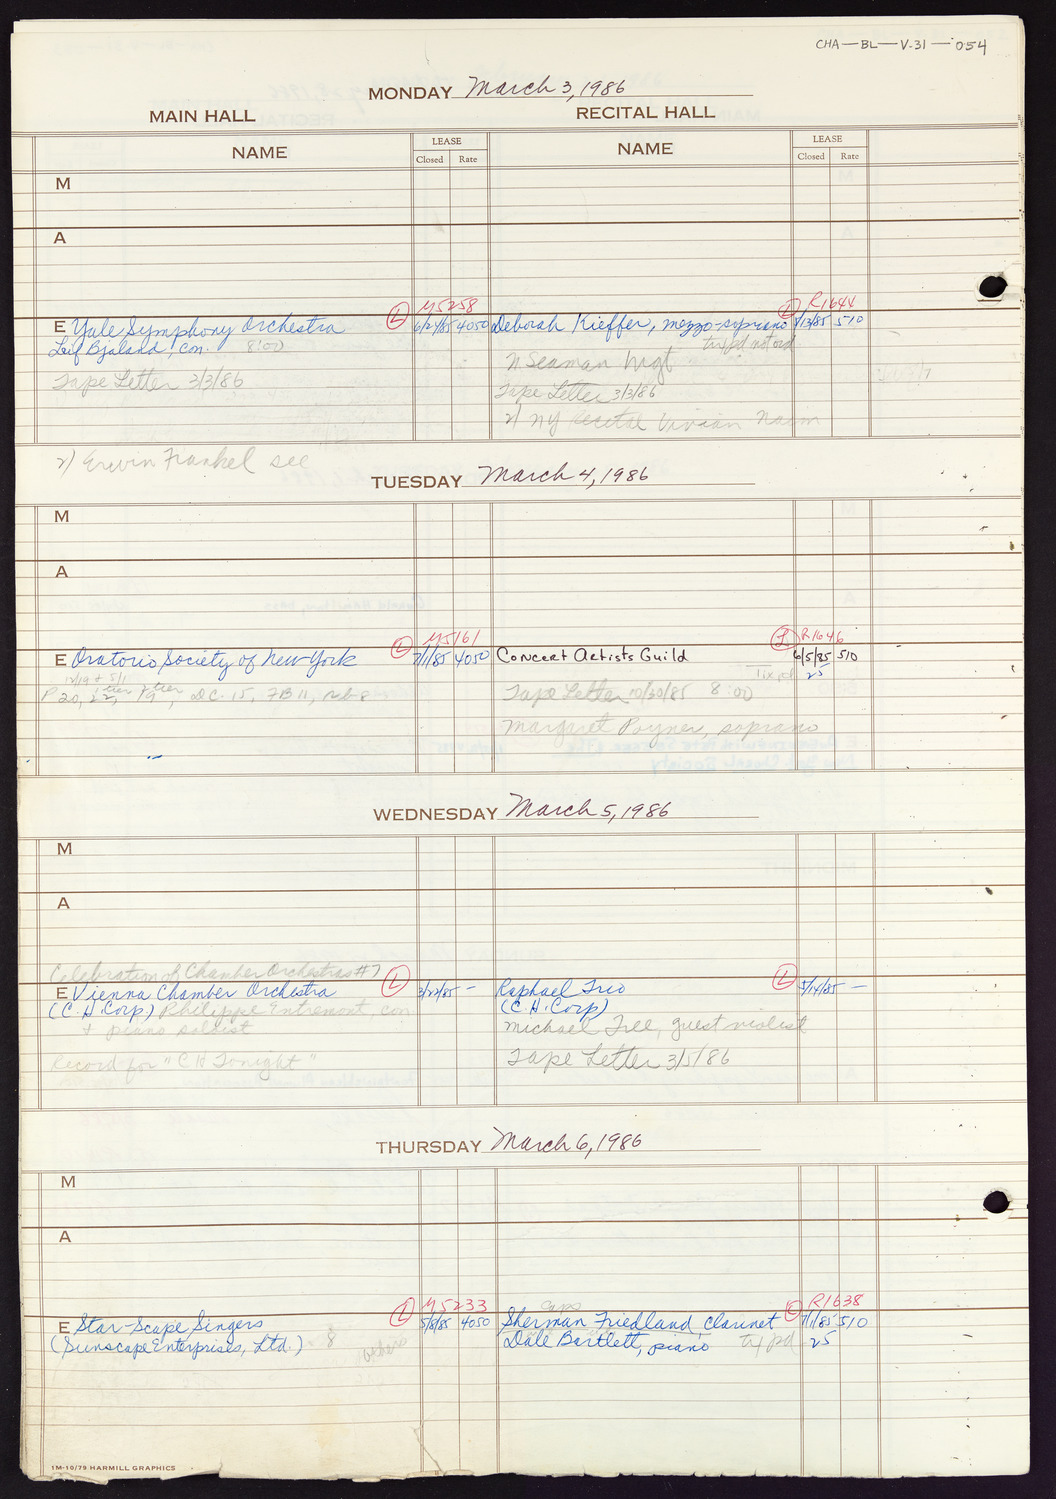 CHA—BL—V-31—054
MONDAY March 3, 1986
MAIN HALL RECITAL HALL
NAME LEASE Closed Rate NAME LEASE Closed Rate
M
A
M5258 R1644
E Yale Symphony Orchestra L 6/24/85 4050 Deborah Kieffer, mezzo-soprano L 7/13/85 510
Leif Bjaland, con. 8:00 tix pd not ord
N Seaman Mgt
Tape Letter 3/3/86 Tape Letter 3/3/86
2) NY recital Vivian
2) Ervin Frankel sec
TUESDAY March 4, 1986
M
A
M5161 R1646
E Oratorio Society of New York L 7/1/85 4050 Concert Artists Guild L 6/5/85 510
12/19 + 5/1 Tix pd 25
P 20, 22, 1st tier 19, 2nd tier, DC. 15, FB 11, Tape Letter 10/30/85 8:00
Margret Poyner, soprano
WEDNESDAY March 5, 1986
M
A
Celebration of Chamber Orchestras #7
E Vienna Chamber Orchestra L 3/22/85 — Raphael Trio L 5/14/85 —
(C.H. Corp) Philippe Entremont, con (C.H. Corp)
+ piano soloist Michael Tree, guest violist
Record for "C H Tonight" Tape Letter 3/5/86
THURSDAY March 6, 1986
M
A
M5233 R1638
E Star-Scape Singers L 5/8/85 4050 Sherman Friedland, clarinet L 7/1/85 510
(Sunscape Enterprises, Ltd.) 8 Dale Bartlett, piano tix pd 25
1M-10/79 HARMILL GRAPHICS